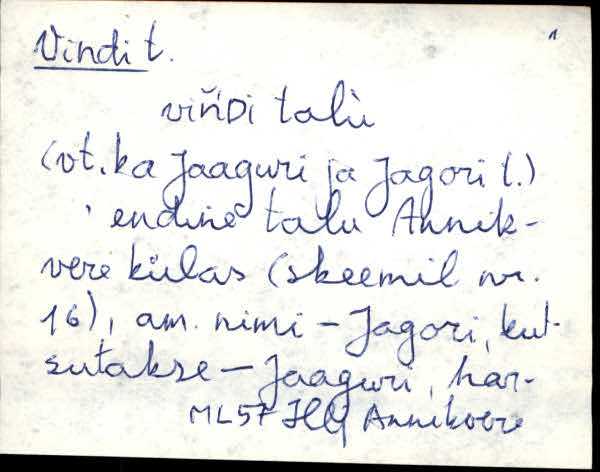 Vindi t. 1
viňDi talù
(vt. ka Jaaguri ja Jagori t.)
endine talu Annik-
vere külas (skeemil nr.
16), am. nimi - Jagori, kut-
sutakse - Jaaguri, har-
ML57 Annikvere